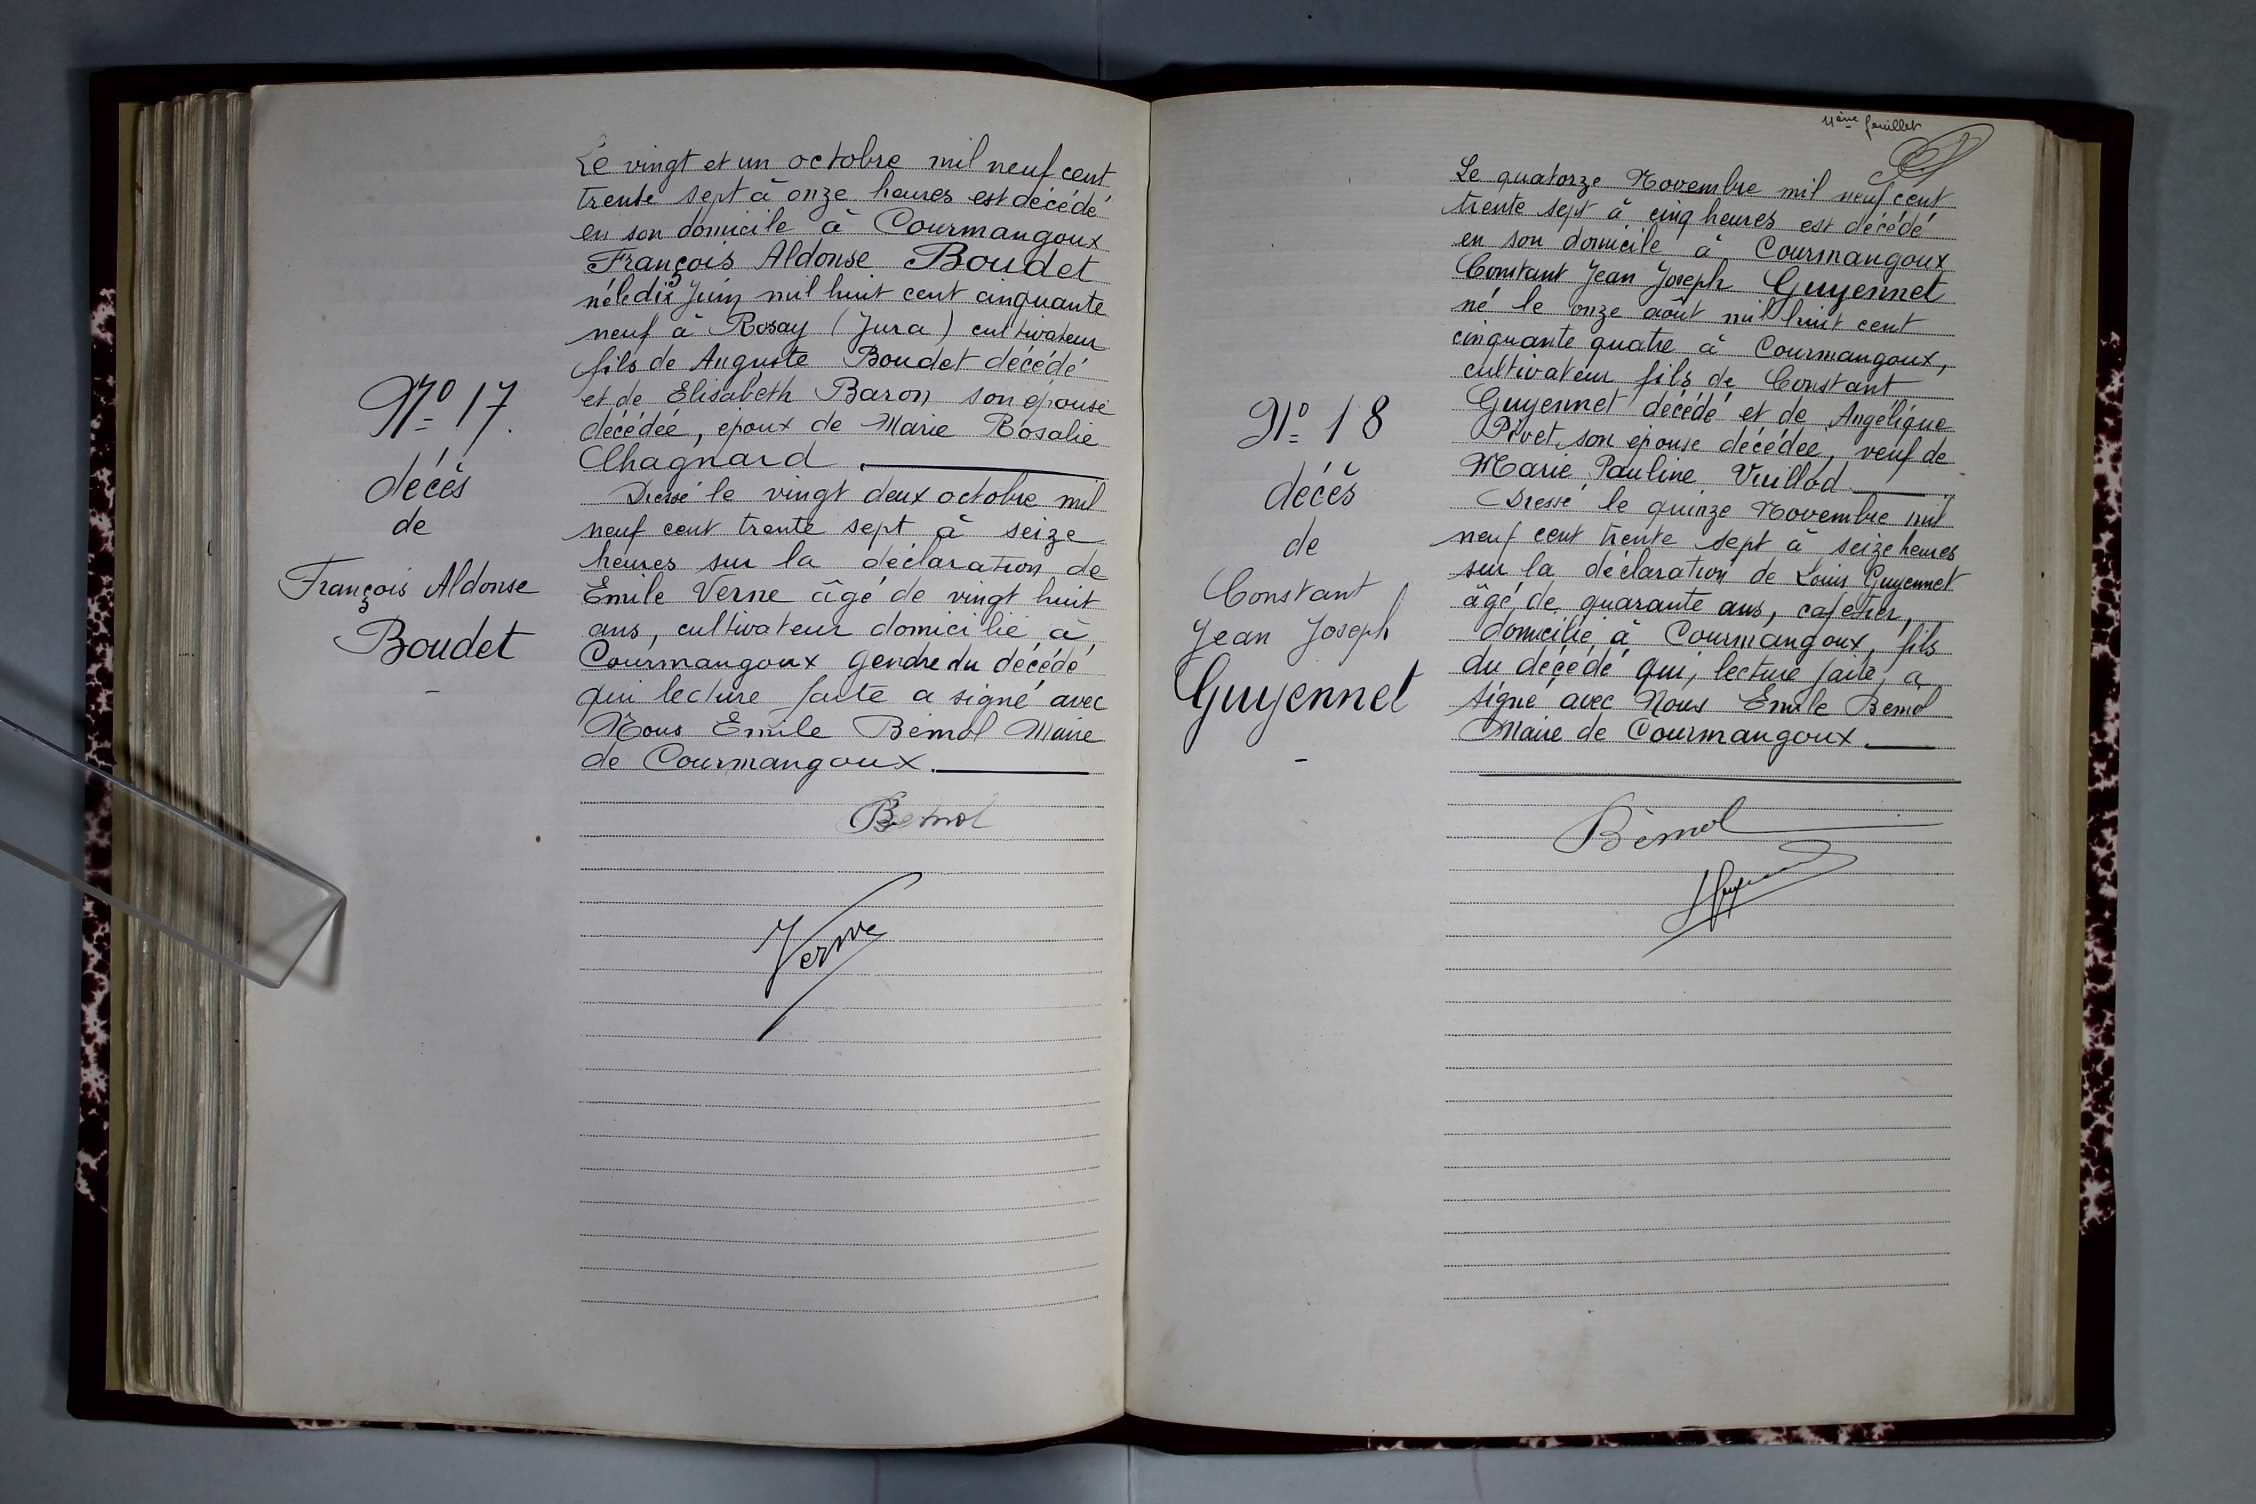 Le vingt et un octobre mil neuf cent
trente sept à onze heures est décédé
en son domicile à Courmangoux
François Aldonse Boudet
né le dix Juin mil huit cent cinquante
neuf à Rosay (Jura) cultivateur
fils de Auguste Boudet décédé
et de Elisabeth Baron son épouse
décédée, époux de Marie Rosalie
Chagnard.
Dressé le vingt deux octobre mil
neuf cent trente sept à seize
heures sur la déclaration de
Emile Verne âgé de vingt huit
ans, cultivateur domicilié à
Courmangoux gendre du décédé
qui lecture faite a signé avec
Nous Emile Bémol Maire
de Courmangoux.
Bémol
Verne
No 17.
décès
de
François Aldonse
Boudet
11ème feuillet
Le quatorze Novembre mil neuf cent
trente sept à cinq heures est décédé
en son domicile à Courmangoux
Constant Jean Joseph Guyennet
né le onze août mil huit cent
cinquante quatre à Courmangoux,
cultivateur fils de Constant
Guyennet décédé et de Angélique
Pivet son épouse décédée, veuf de
Marie Pauline Vuillod
Dressé le quinze Novembre mil
neuf cent trente sept à seize heures
sur la déclaration de Louis Guyennet
âgé de quarante ans, cafetier,
domicilié à Courmangoux, fils
du décédé qui, lecture faite, a
signé avec Nous Emile Bémol
Maire de Courmangoux.
Bémol
No 18
décès
de
Constant
Jean Joseph
Guyennet